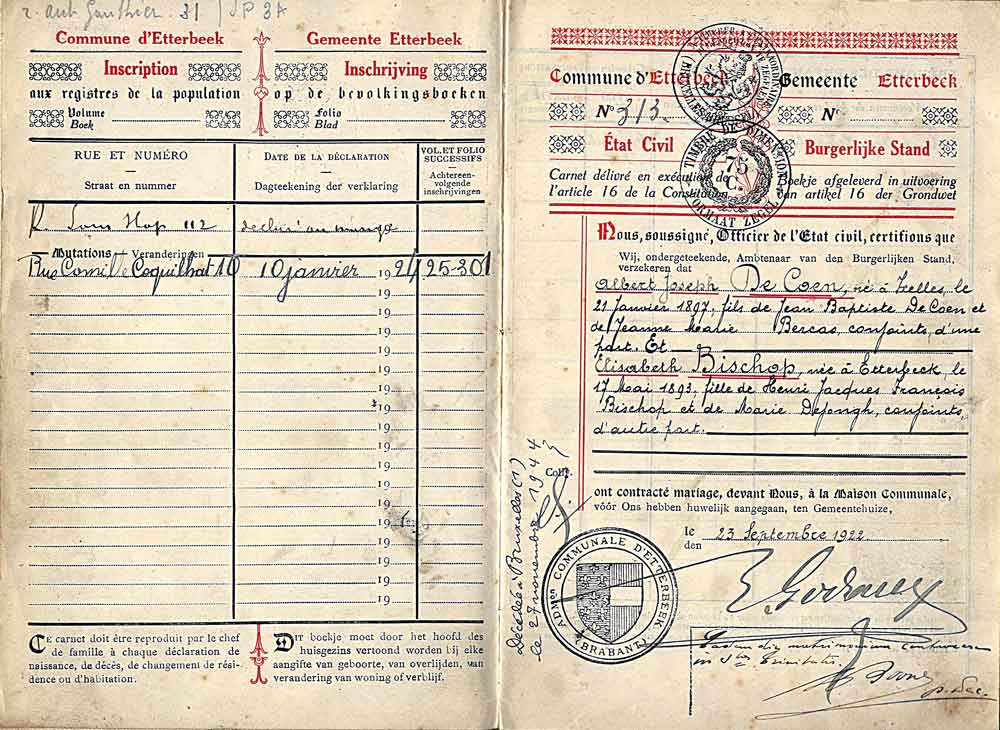 31 / J.P 3A
Commune d'Etterbeek
Gemeente Etterbeek
Inscription
Inschrijving
aux registres de la population
op de bevolkingsboeken
Volume
Boek
Folio
Blad
RUE ET NUMÉRO
Straat en nummer
DATE DE LA DÉCLARATION
Dagteekening der verklaring
VOL. ET FOLIO
SUCCESSIFS
Achtereen-
volgende
inschrijvingen
112
Mutations Veranderingen
Rue Comd.t Coquilhat 10 10 janvier 1924 25-301
19
19
19
19
19
19
19
19
19
19
19
19
19
19
19
19
19
CE carnet doit être reproduit par le chef
de famille à chaque déclaration de
naissance, de décès, de changement de rési-
dence ou d'habitation.
DIT boekje moet door het hoofd des
huisgezins vertoond worden bij elke
aangifte van geboorte, van overlijden, van
verandering van woning of verblijf.
Commune d'Etterbeek
Gemeente Etterbeek
No 313.
No
État Civil
Burgerlijke Stand
TIMBRE DE DIMENSION
75
C.
FORMAAT ZEGEL
Carnet délivré en exécution de
l'article 16 de la Constitution
Boekje afgeleverd in uitvoering
van artikel 16 der Grondwet
Nous, soussigné, Officier de l'Etat civil, certifions que
Wij, ondergeteekende, Ambtenaar van den Burgerlijken Stand,
verzekeren dat
Albert Joseph De Coen, né à Ixelles, le
21 Janvier 1897, fils de Jean Baptiste De Coen et
de Jeanne Marie Bercas, conjoints, d'une
part. Et
Elisabeth Bischop, née à Etterbeek, le
17 Mai 1893, fille de Henri Jacques François
Bischop et de Marie Dejongh, conjoints,
d'autre part.
Coll.
ont contracté mariage, devant Nous, à la Maison Communale,
vóór Ons hebben huwelijk aangegaan, ten Gemeentehuize,
le
den
23 Septembre 1922.
Décédé à Bruxelles (1)
le 27 novembre 1944
ADMon COMMUNALE D'ETTERBEEK
(BRABANT)